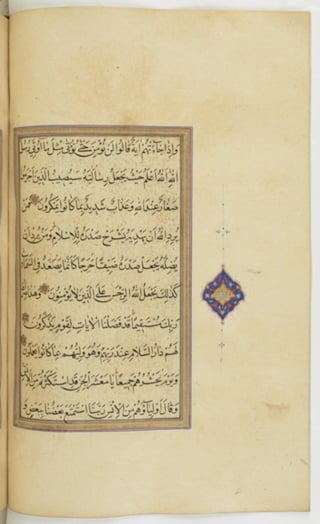 واذا جاءتهم اية قالوا لن نؤمن حتى نؤتى مثل ما اوتي رسل
الله الله اعلم حيث يجعل رسالته سيصيب الذين اجرموا
صغار عند الله وعذاب شديد بما كانوا يمكرون فمن
يرد الله ان يهديه يشرح صدره للاسلام ومن يرد ان
يضله يجعل صدره ضيقا حرجا كانما يصعد في السماء
كذلك يجعل الله الرجس على الذين لا يؤمنون وهذا صراط
ربك مستقيما قد فصلنا الايات لقوم يذكرون
لهم دار السلام عند ربهم وهو وليهم بما كانوا يعملون
ويوم يحشرهم جميعا يا معشر الجن قد استكثرتم من الانس
وقال اولياؤهم من الانس ربنا استمتع بعضنا ببعض و